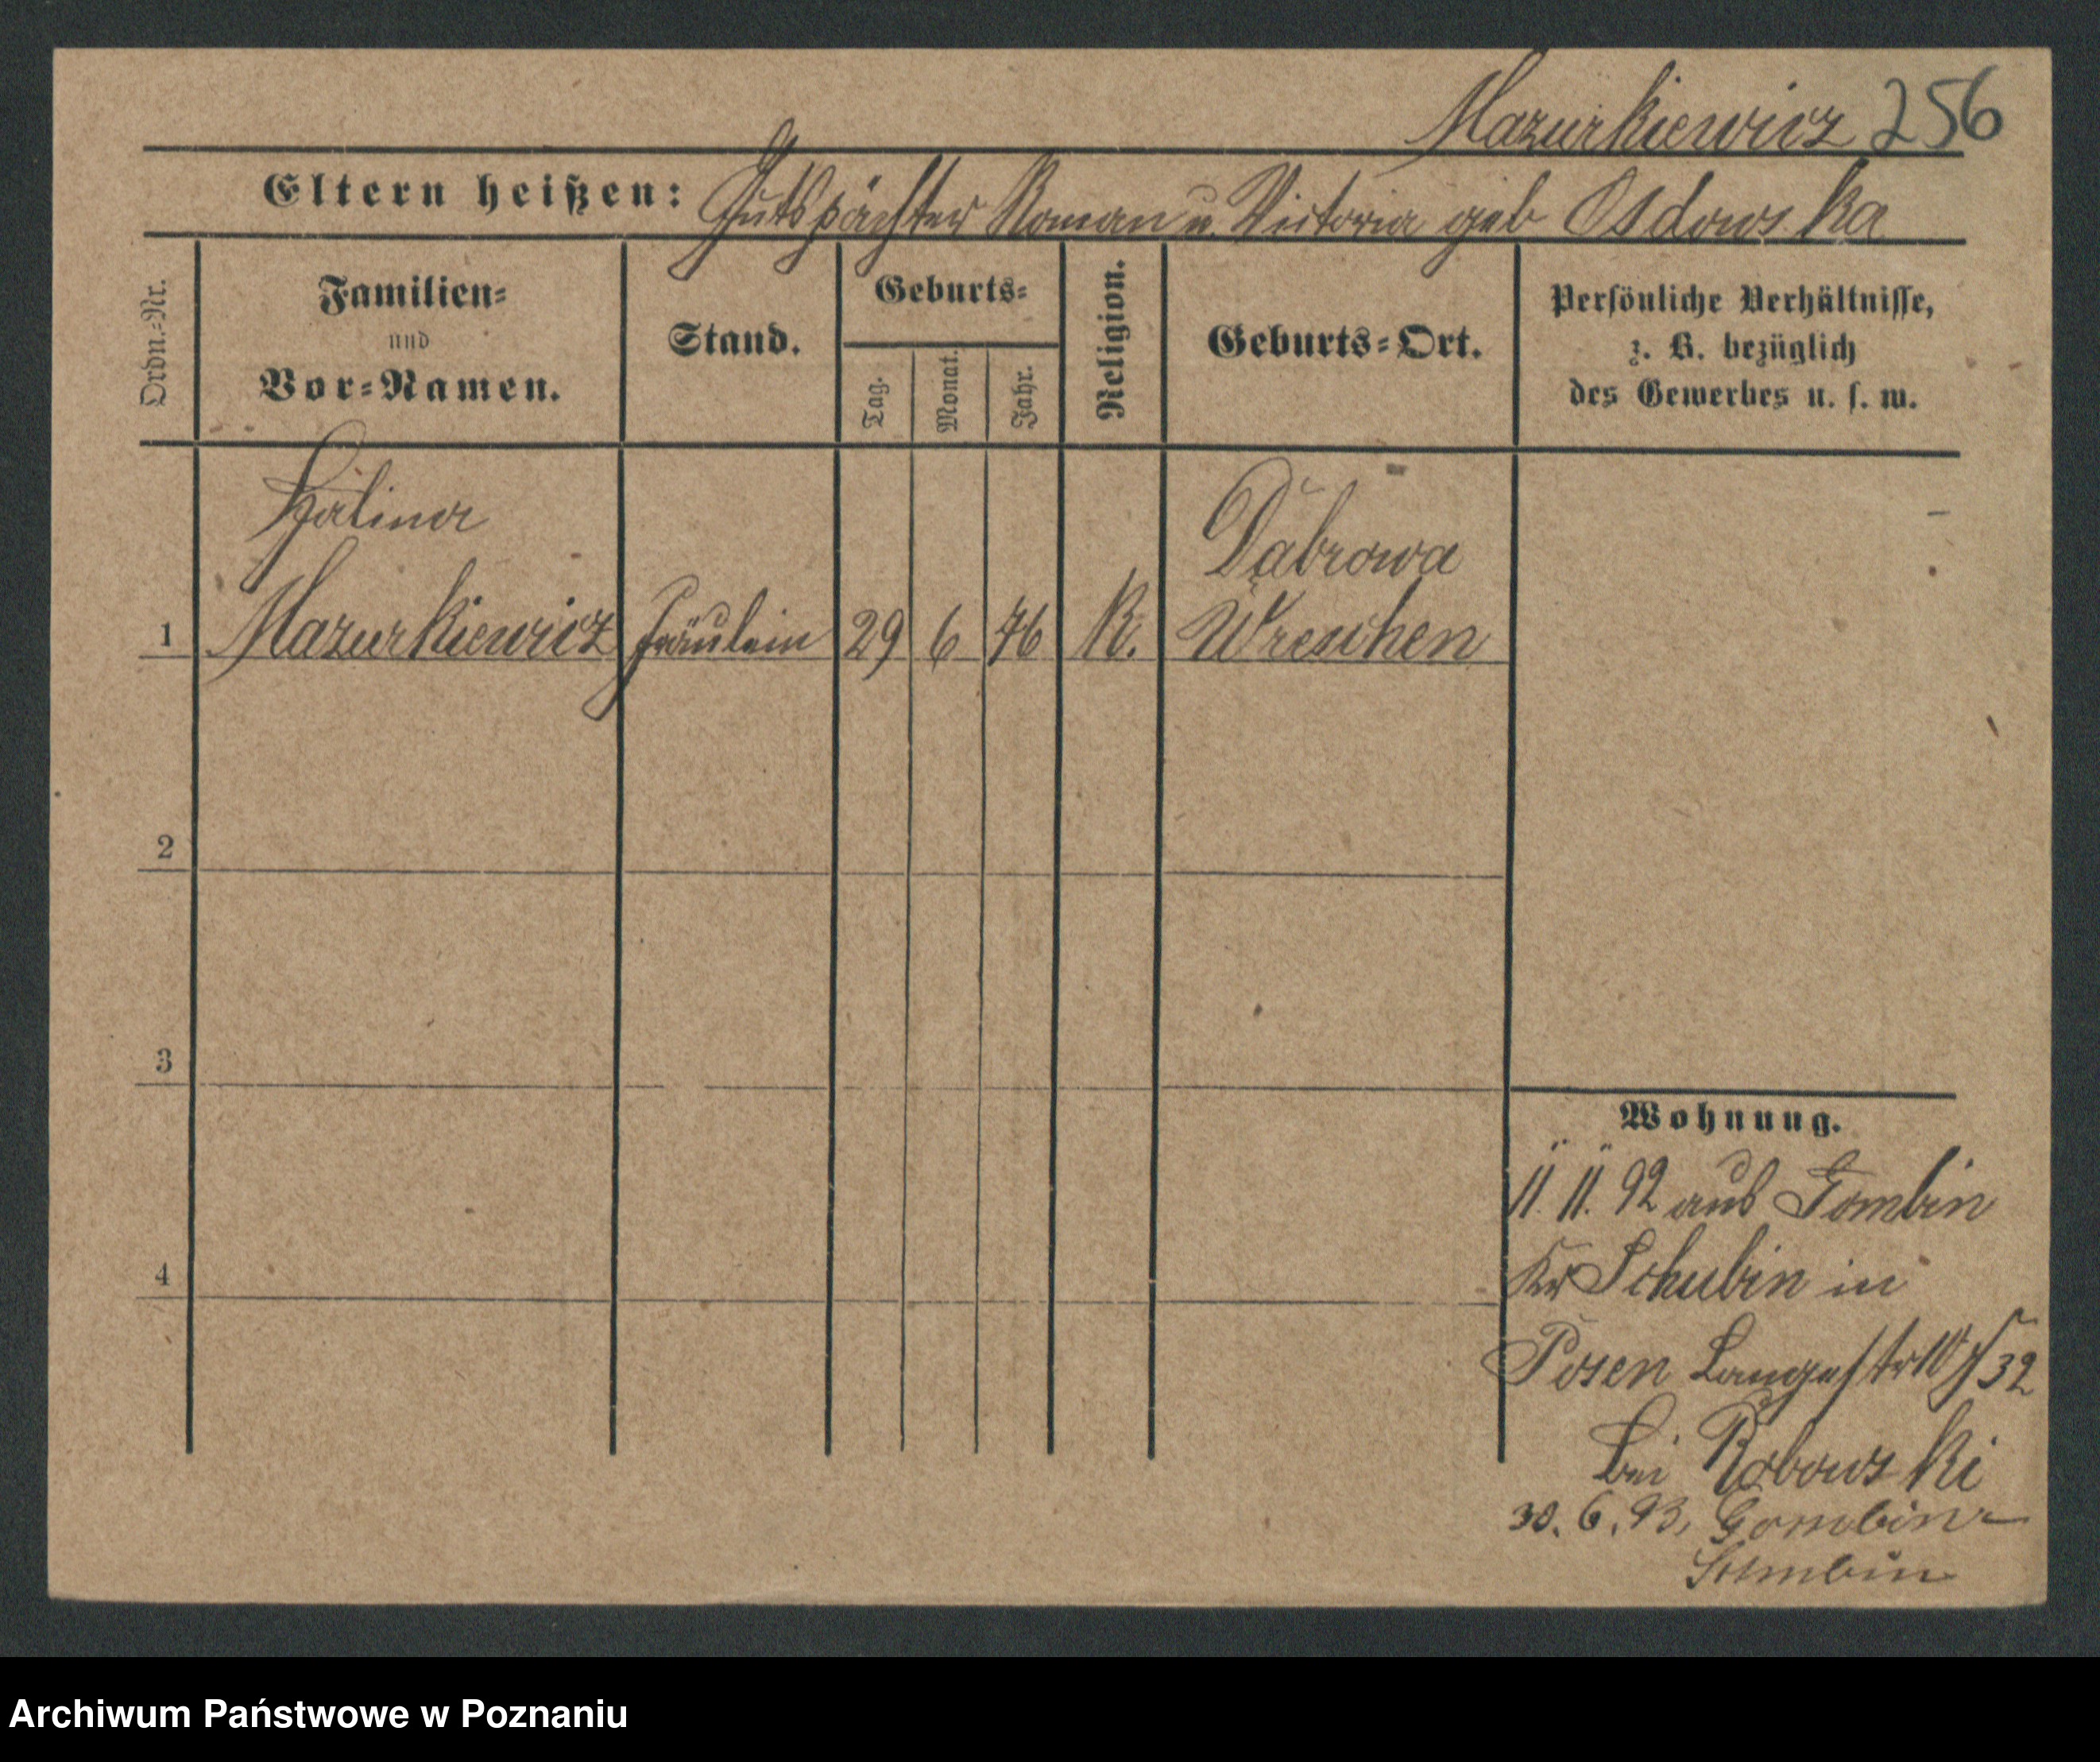 Mazurkiewicz 256
Eltern heißen: Gutspächter Roman u. Victoria geb Osdowska
Ordn.-Nr.
Familien-
und
Vor-Namen.
Stand.
Geburts-
Tag.
Monat.
Jahr.
Religion.
Geburts-Ort.
Persönliche Verhältnisse,
z. B. bezüglich
des Gewerbes u. s. w.
Halina
Dąbrowa
1 Mazurkiewicz Fräulein 29 6 76 K. Wreschen
2
3
4
Wohnung.
11. 11. 92 aus Gombin
Kr Schubin in
Posen Langestr 32
bei
30. 6. 93, Gombin
Schubin
Archiwum Państwowe w Poznaniu